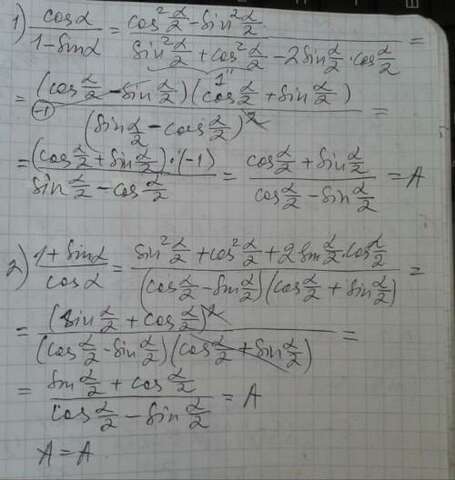 1) cosα/(1-sinα) = (cos²α/2 - sin²α/2)/(sin²α/2 + cos²α/2 - 2sinα/2·cosα/2) =
= ((cosα/2 - sinα/2)(cosα/2 + sinα/2))/(sinα/2 - cosα/2)² =
= ((cosα/2 + sinα/2)·(-1))/(sinα/2 - cosα/2) = (cosα/2 + sinα/2)/(cosα/2 - sinα/2) = A
2) (1+sinα)/cosα = (sin²α/2 + cos²α/2 + 2sinα/2·cosα/2)/((cosα/2 - sinα/2)(cosα/2 + sinα/2)) =
= (sinα/2 + cosα/2)²/((cosα/2 - sinα/2)(cosα/2 + sinα/2)) =
= (sinα/2 + cosα/2)/(cosα/2 - sinα/2) = A
A = A